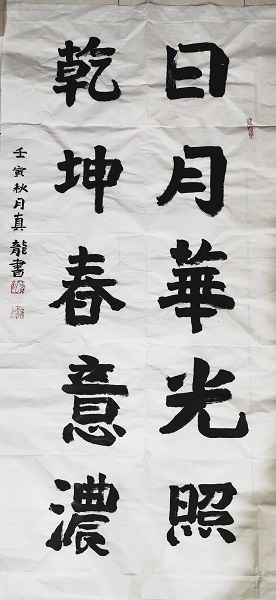 日月華光照
乾坤春意濃
壬寅秋月真龍書